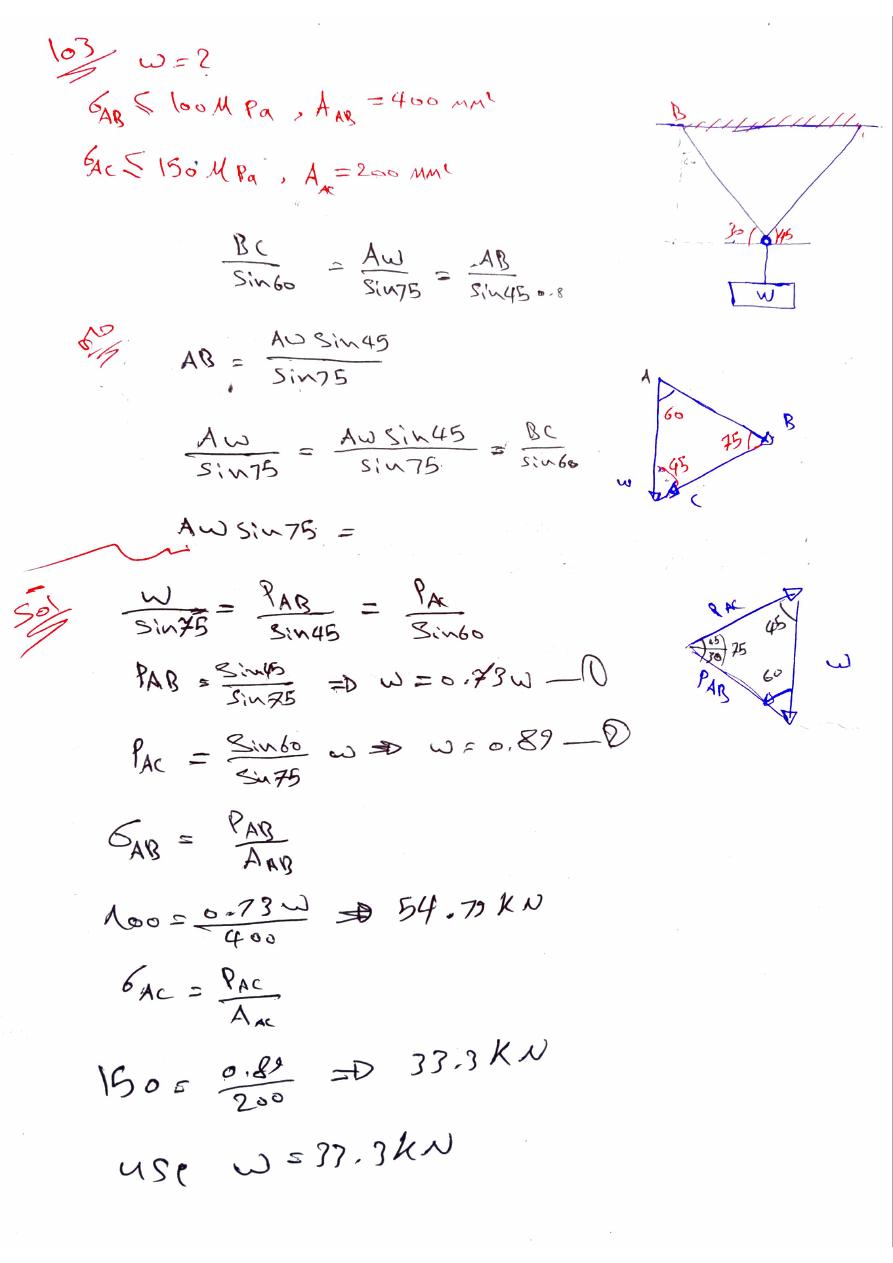 103 W = ?
σAB ≤ 100 M Pa , AAB = 400 mm²
σAC ≤ 150 M Pa , AAC = 200 mm²
B
30 45
W
BC/Sin60 = AW/Sin75 = AB/Sin45 0.8
AB = AW Sin45/Sin75
A
60
75 B
45
W
C
AW/sin75 = AW Sin45/sin75 = BC/sin60
AW Sin75 =
Sol
W/Sin75 = PAB/Sin45 = PAC/Sin60
PAC
45
45
30
75
60
W
PAB
PAB = Sin45/Sin75 ⇒ W = 0.73W — ①
PAC = Sin60/Sin75 W ⇒ W = 0.89 — ②
σAB = PAB/AAB
100 = 0.73W/400 ⇒ 54.79 KN
σAC = PAC/AAC
150 = 0.89/200 ⇒ 33.3 KN
use W = 33.3 KN